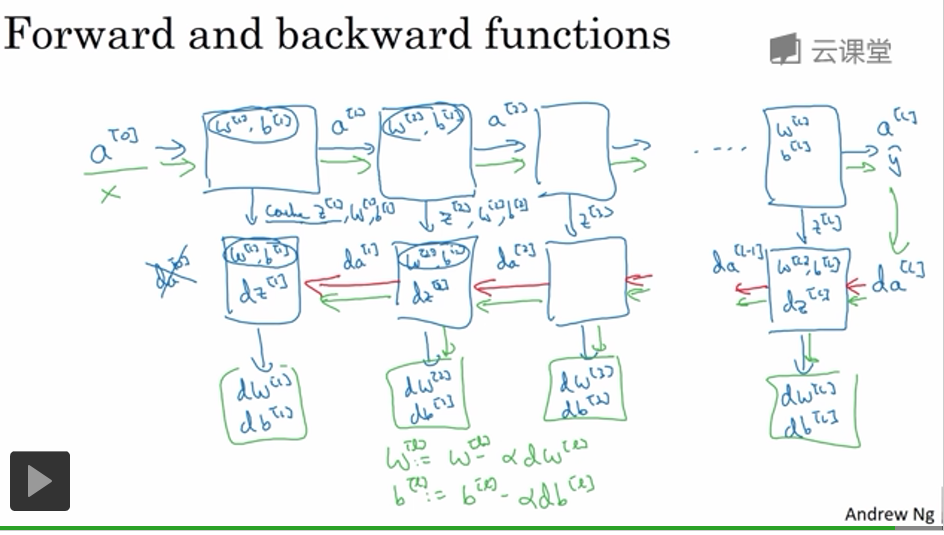 Forward and backward functions
云课堂
a^[0] w^[1], b^[1] a^[1] w^[2], b^[2] a^[2] .... w^[L] a^[L]
x b^[L] ŷ
cache z^[1], w^[1], b^[1] z^[2], w^[2], b^[2] z^[3] z^[L]
da^[0] w^[1], b^[1] da^[1] w^[2], b^[2] da^[2] da^[L-1] w^[L], b^[L] da^[L]
dz^[1] dz^[2] dz^[L]
dw^[1] dw^[2] dw^[3] dw^[L]
db^[1] db^[2] db^[3] db^[L]
w^[l] := w^[l] - αdw^[l]
b^[l] := b^[l] - αdb^[l]
Andrew Ng